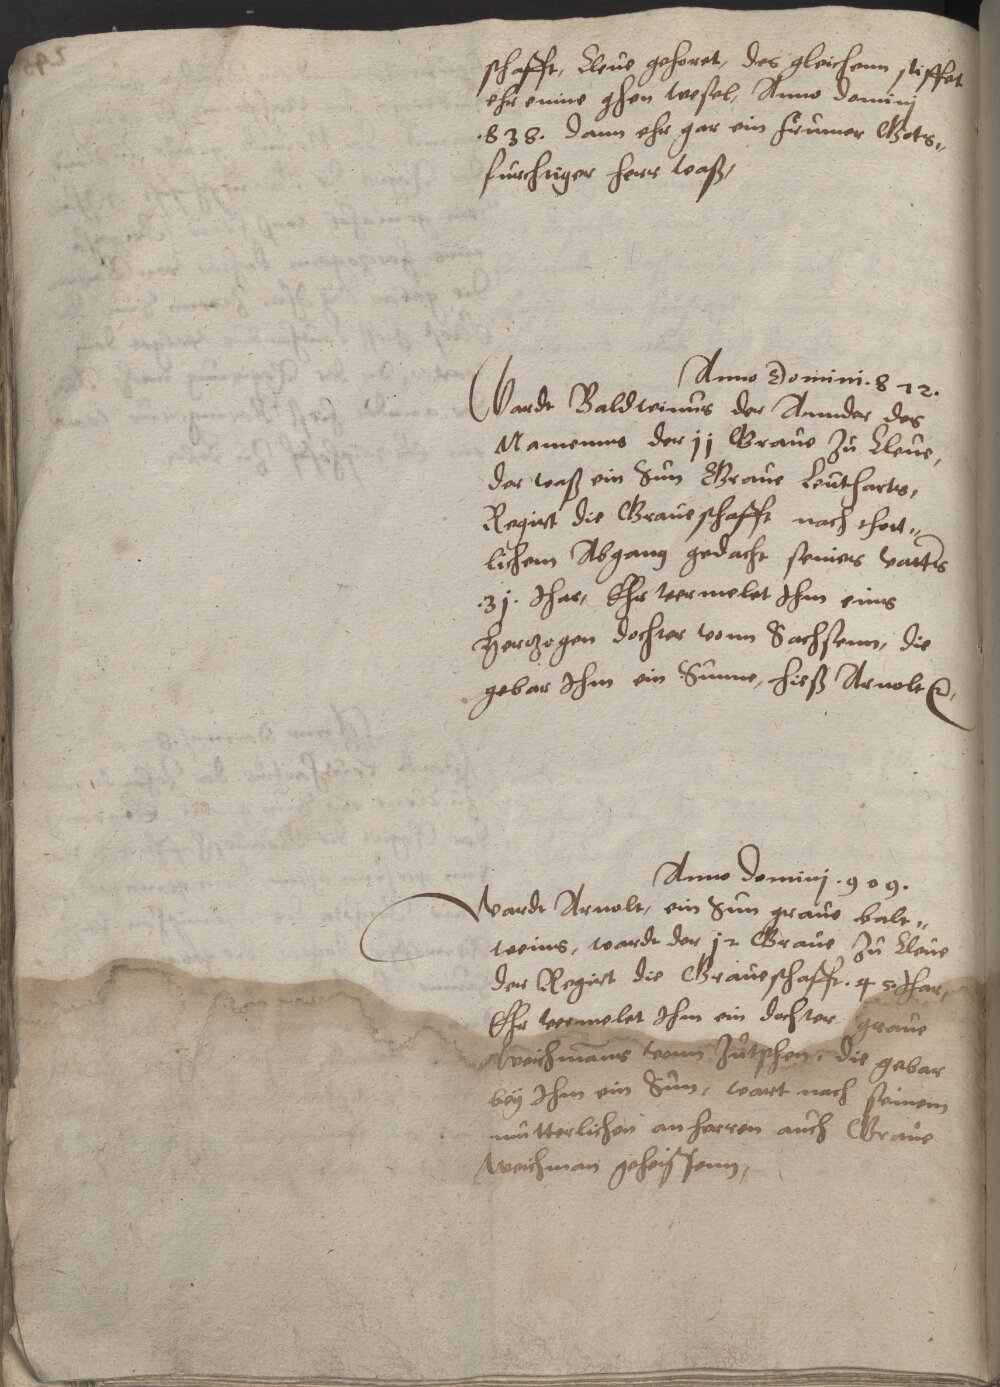 schafft, Cleue gehoret, des gleichenn stifftet
ehr eine ghen wesel, Anno Domini
.838. dann ehr gar ein frumer Gots„
furchtiger herr waß,
Anno Domini. 872.
Wardt Baldwinus der Annder des
Namenns der 11 Graue Zu Cleue,
der waß ein Sun Graue Leutharts,
Regirt die Graueschafft nach thott„
lichem Abgang gedacht seines vatters
.31. Jhar, Ehr vermelet Jhm eins
Hertzogen dochter vonn Sachsenn, die
gebar Jhm ein Sunne, hieß Arnolt
Anno Domini. 909.
Wardt Arnolt, ein Sun graue balt„
weins, wardt der 12 Graue Zu Cleue
der Regirt die Graueschafft. 45. Jhar,
Ehr vermelet Jhm ein dochter graue
Weichmanns vonn Zutphen, die gebar
bey Jhm ein Sun, wart nach seinem
mutterlichen anherren auch Graue
Weichman geheissenn,